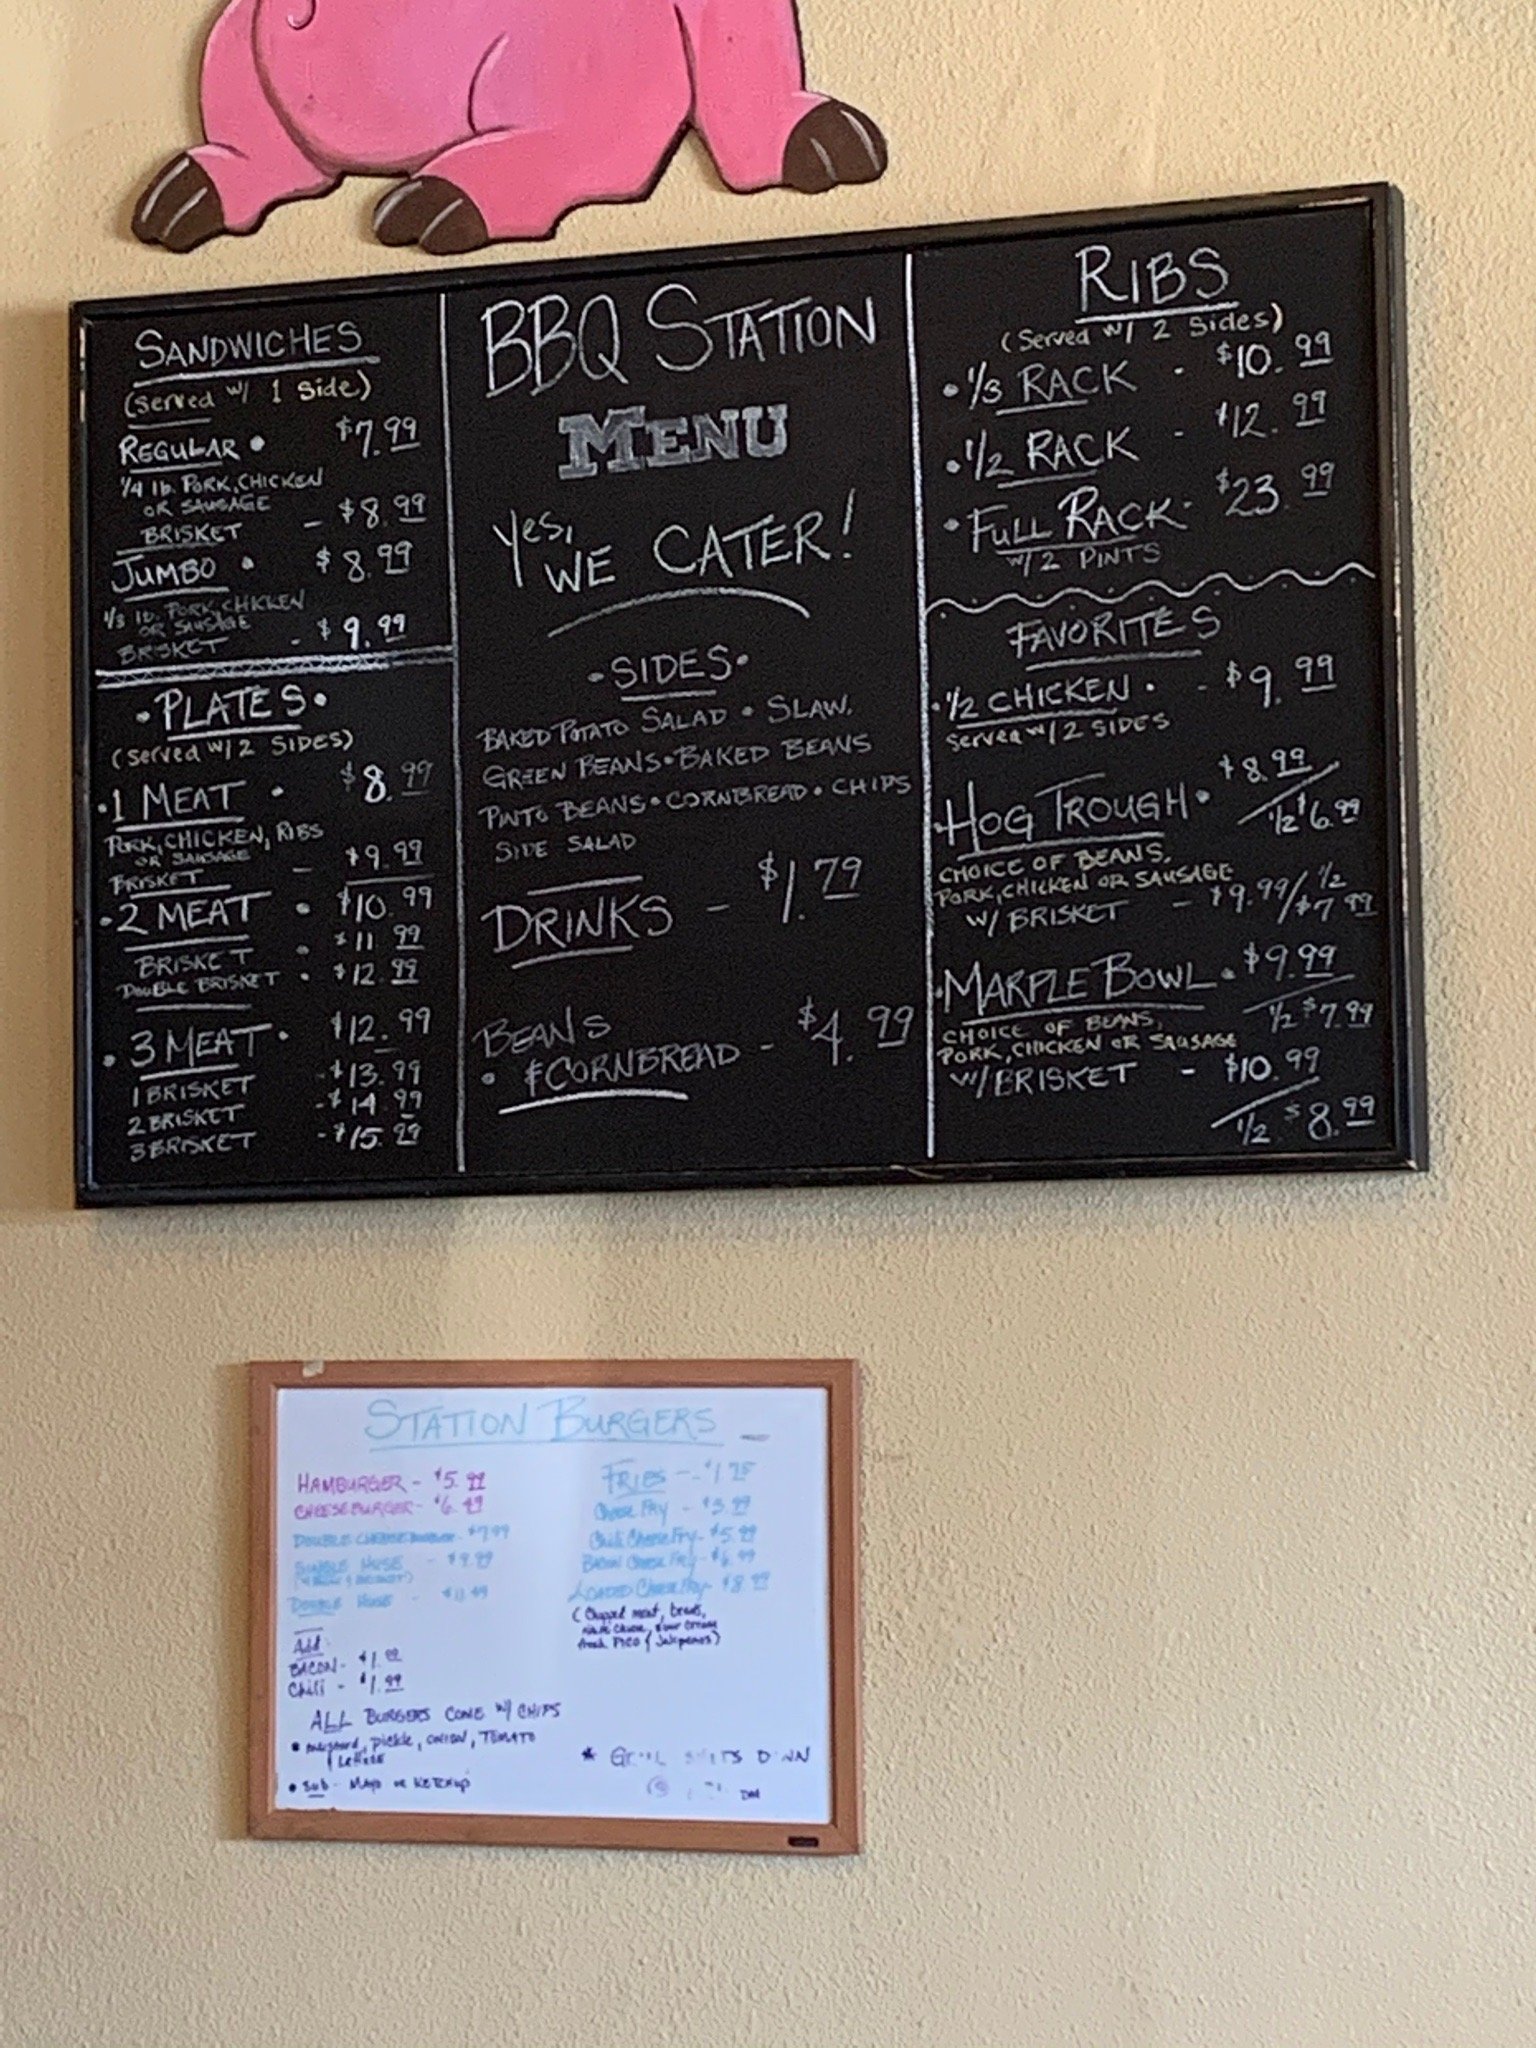 SANDWICHES
(Served w/ 1 Side)
REGULAR • $7.99
1/4 lb. PORK, CHICKEN
OR SAUSAGE
BRISKET - $8.99
JUMBO • $8.99
1/3 lb. PORK, CHICKEN
OR SAUSAGE
BRISKET - $9.99
• PLATES •
(Served w/ 2 SIDES)
• 1 MEAT • $8.99
PORK, CHICKEN, RIBS
OR SAUSAGE
BRISKET - $9.99
• 2 MEAT • $10.99
BRISKET • $11.99
DOUBLE BRISKET • $12.99
• 3 MEAT • $12.99
1 BRISKET - $13.99
2 BRISKET - $14.99
3 BRISKET - $15.99
BBQ STATION
MENU
Yes,
WE CATER!
• SIDES •
BAKED POTATO SALAD • SLAW,
GREEN BEANS • BAKED BEANS
PINTO BEANS • CORNBREAD • CHIPS
SIDE SALAD
DRINKS - $1.79
BEANS
• & CORNBREAD - $4.99
RIBS
(Served w/ 2 Sides)
• 1/3 RACK - $10.99
• 1/2 RACK - $12.99
• FULL RACK - $23.99
w/ 2 PINTS
FAVORITES
• 1/2 CHICKEN • - $9.99
Served w/ 2 SIDES
• HOG TROUGH • $8.99
1/2 $6.99
CHOICE OF BEANS,
PORK, CHICKEN OR SAUSAGE
w/ BRISKET - $9.99 / 1/2 $7.99
• MARPLE BOWL • $9.99
1/2 $7.99
CHOICE OF BEANS,
PORK, CHICKEN OR SAUSAGE
w/ BRISKET - $10.99
1/2 $8.99
STATION BURGERS
HAMBURGER - $5.99
CHEESEBURGER - $6.49
DOUBLE CHEESEBURGER - $7.99
HUSE - $9.99
DOUBLE HUSE -
Add
BACON - $1.99
Chili - $1.99
ALL BURGERS COME w/ CHIPS
• mustard, pickle, ONION, TOMATO
& Lettuce
• Sub - MAYO or KETCHUP
FRIES - $1.75
Cheese Fry - $3.99
Chili Cheese Fry - $5.99
Bacon Cheese Fry - $6.99
LOADED Cheese Fry - $8.99
(Chopped meat, beans,
Cheese, Sour Cream
fresh PICO & Jalapenos)
* DOWN